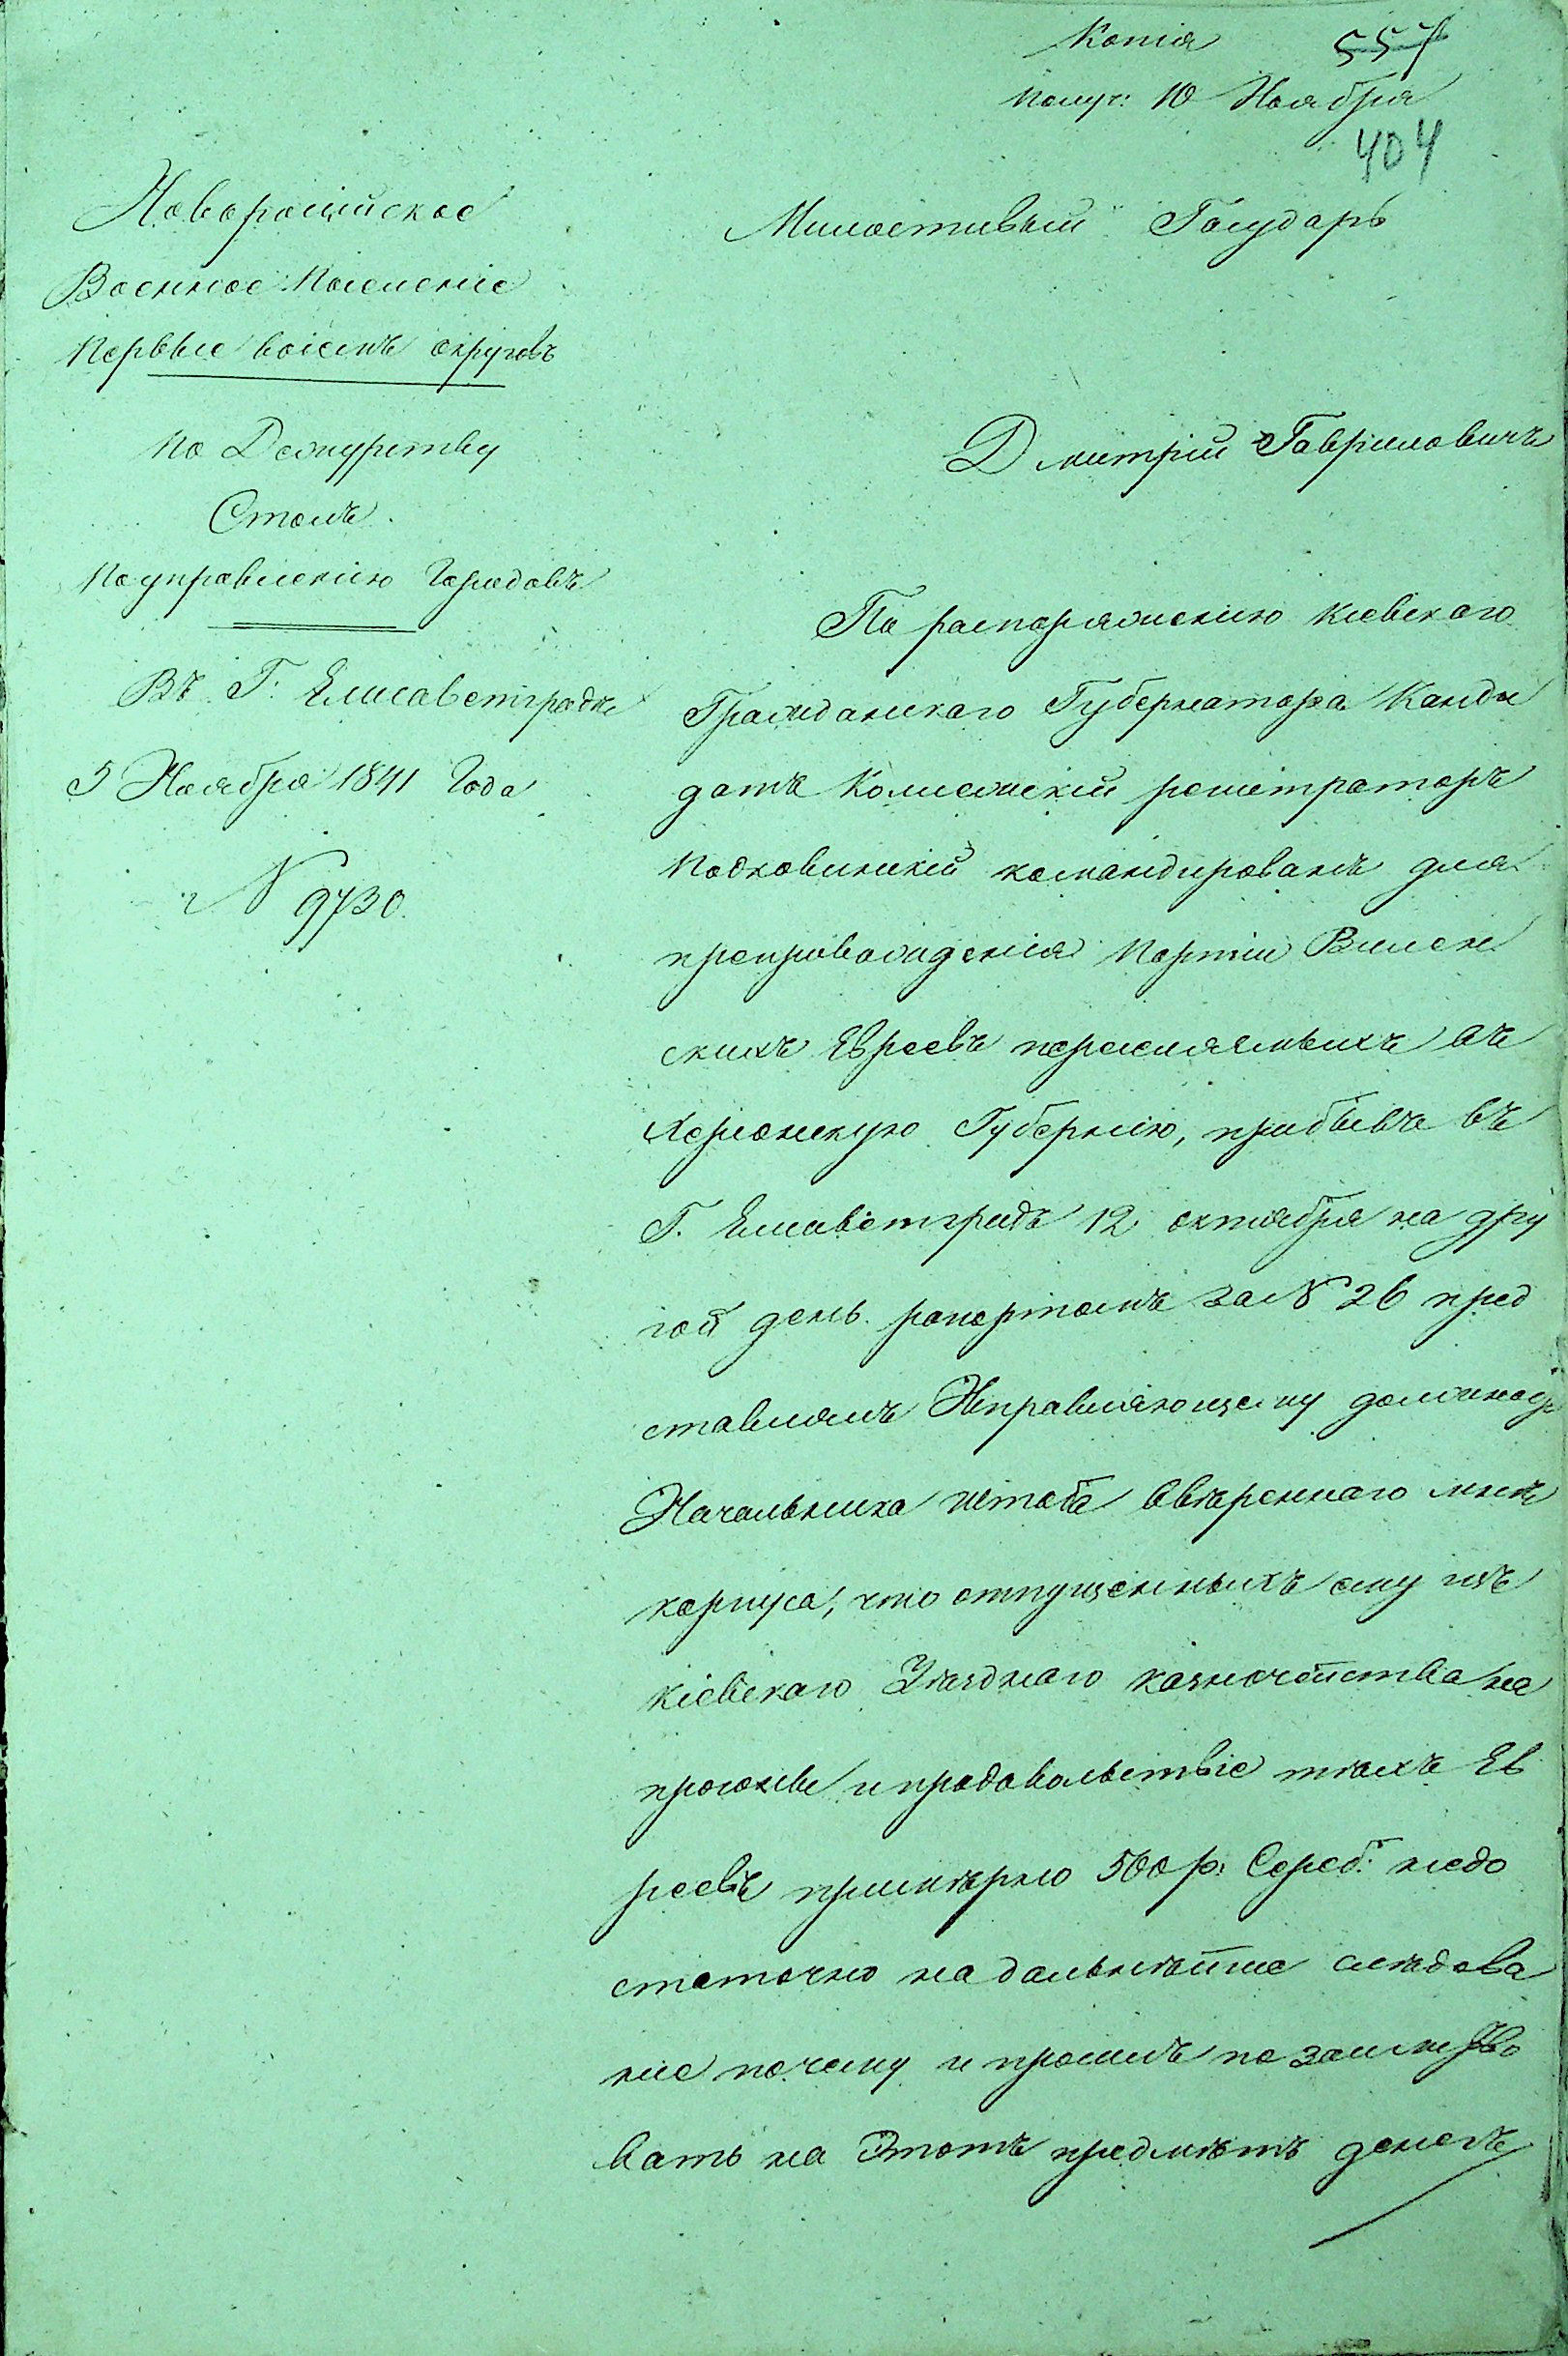 Копія 557
Получ: 10 Ноября
404
Новоросійское
Военное Поселеніе
Первые восемь округовъ
По Дежурству
Столъ
По управленію Городовъ
Въ Г: Елисаветградѣ
5 Ноября 1841 Года
№ 9730.
Милостивый Государь
Дмитрій Гавриловичъ
По распоряженію Кіевскаго
Гражданскаго Губернатора Канди
датъ Колежскій регистраторъ
командированъ для
препровожденія Партіи Вилен
скихъ Евреевъ переселяемыхъ въ
Херсонскую Губернію, прибывъ въ
Г. Елисаветградъ 12 октября на дру
гой день рапортомъ за № 26 пред
ставилъ Исправляющему должность
Начальника Штаба ввѣреннаго мнѣ
корпуса, что отпущенныхъ ему изъ
Кіевскаго Уѣзднаго казначейства на
прогоны и продовольствіе тѣхъ Ев
реевъ примѣрно 500 р: Сереб: недо
статочно на дальнѣйше слѣдова
ніе почему и просилъ позаимство
вать на Этотъ предмѣтъ денегъ